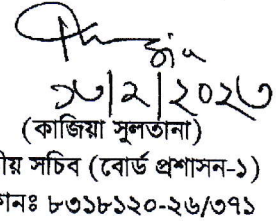 ১৩/২/২০২৩
(কাজিয়া সুলতানা)
ীয় সচিব (বোর্ড প্রশাসন-১)
নঃ ৮৩১৮১২০-২৬/৩৭১